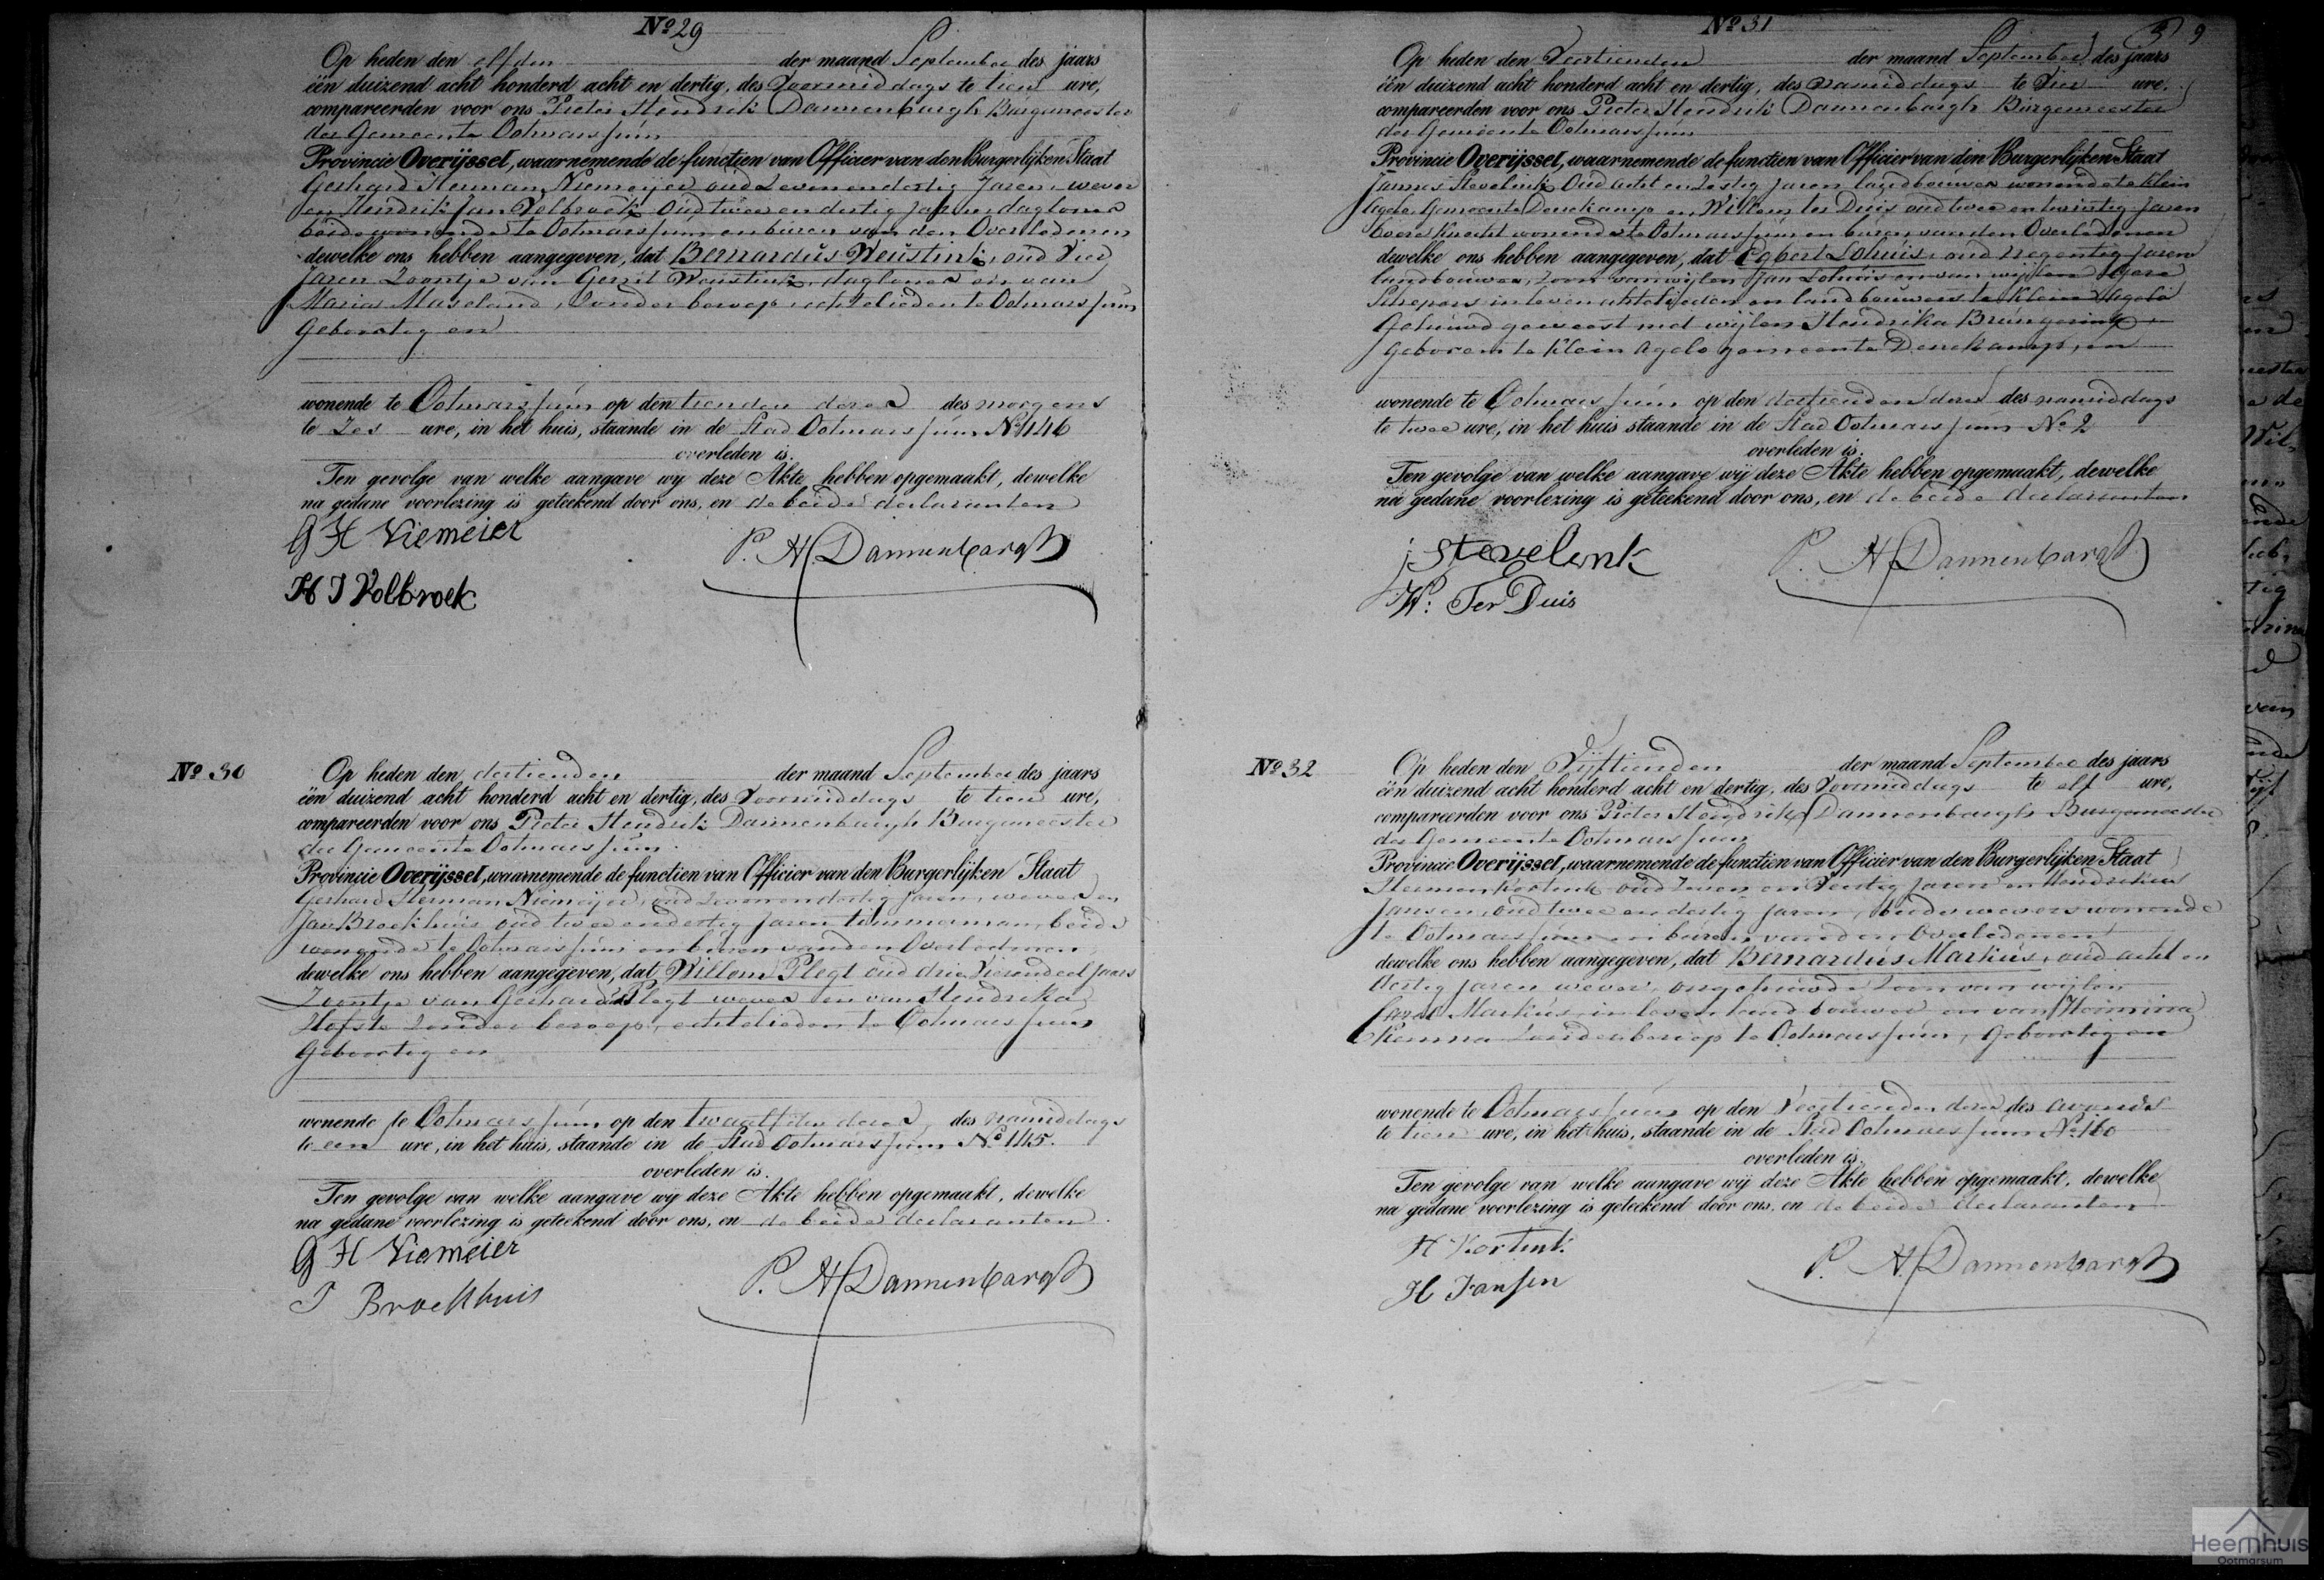 Nº 29
Op heden den elfden der maand September des jaars
één duizend acht honderd acht en dertig, des Voormiddags te tien ure,
compareerden voor ons Pieter Hendrik Dannenbargh Burgemeester
der Gemeente Ootmarssum
Provincie Overijssel, waarnemende de functien van Officier van den Burgerlijken Staat
Gerhard Herman Niemeijer oud Zevenendertig Jaren, wever
en Hendrik Jan Volbroek Oud twee en dertig Jaren, dagloner
beide wonende te Ootmarssum en buren van den Overledenen
dewelke ons hebben aangegeven, dat Bernardus Weustink, oud Vier
Jaren Zoontje van Gerrit Weustink, dagloner en van
Maria Maseland, Zonder beroep, echtelieden te Ootmarssum
Geboortig en
wonende te Ootmarssum op den tienden dezer des morgens
te Zes ure, in het huis, staande in de Stad Ootmarssum Nº 146
overleden is.
Ten gevolge van welke aangave wy deze Akte hebben opgemaakt, dewelke
na gedane voorlezing is geteekend door ons, en de beide declaranten
G H Niemeier
P. H Dannenbargh
H J Volbroek
Nº 30
Op heden den dertienden der maand September des jaars
één duizend acht honderd acht en dertig, des Voormiddags te tien ure,
compareerden voor ons Pieter Hendrik Dannenbargh Burgemeester
der Gemeente Ootmarssum
Provincie Overijssel, waarnemende de functien van Officier van den Burgerlijken Staat
Gerhard Herman Niemeijer, oud Zevenendertig Jaren, wever en
Jan Broekhuis oud twee en dertig Jaren timmerman, beide
wonende te Ootmarssum en buren van den Overledenen
dewelke ons hebben aangegeven, dat Willem Plegt oud drie Vierendeel Jaars
Zoontje van Gerhardus Plegt wever en van Hendrika
Hofste Zonder beroep, echtelieden te Ootmarssum
Geboortig en
wonende te Ootmarssum op den twaalfden dezer des namiddags
te een ure, in het huis, staande in de Stad Ootmarssum Nº 145.
overleden is.
Ten gevolge van welke aangave wy deze Akte hebben opgemaakt, dewelke
na gedane voorlezing is geteekend door ons, en de beide declaranten
G H Niemeier
P. H Dannenbargh
J Broekhuis
Nº 31
9
Op heden den Veertienden der maand September des jaars
één duizend acht honderd acht en dertig, des namiddags te Vier ure,
compareerden voor ons Pieter Hendrik Dannenbargh Burgemeester
der Gemeente Ootmarssum
Provincie Overijssel, waarnemende de functien van Officier van den Burgerlijken Staat
Jannes Stevelink Oud acht en Zestig Jaren landbouwer wonende te klein
Agelo Gemeente Denekamp en Willem ter Duis oud twee en twintig Jaren
boereknecht wonende te Ootmarssum en buren van den Overledenen
dewelke ons hebben aangegeven, dat Egbert Lohuis, oud negentig Jaren
landbouwer, Zoon van wijlen Jan Lohuis en van wijlen
in leven echtelieden en landbouwers te Klein Agelo
Gehuwd geweest met wijlen Hendrika Brungerink
Geboren te Klein Agelo gemeente Denekamp, en
wonende te Ootmarssum op den dertienden dezer des namiddags
te twee ure, in het huis staande in de Stad Ootmarssum Nº 2
overleden is.
Ten gevolge van welke aangave wij deze Akte hebben opgemaakt, dewelke
na gedane voorlezing is geteekend door ons, en de beide declaranten
j Stevelink
P. H Dannenbargh
W: Ter Duis
Nº 32
Op heden den Vijftienden der maand September des jaars
één duizend acht honderd acht en dertig, des Voormiddags te elf ure,
compareerden voor ons Pieter Hendrik Dannenbargh Burgemeester
der Gemeente Ootmarssum
Provincie Overijssel, waarnemende de functien van Officier van den Burgerlijken Staat
Herman Kortink oud Zeven en Veertig Jaren en Hendrikus
Jansen, oud twee en dertig Jaren, beide wevers wonende
te Ootmarssum en buren van den Overledenen
dewelke ons hebben aangegeven, dat Bernardus Markius, oud acht en
dertig Jaren wever, ongehuwde Zoon van wijlen
Markius in leven landbouwer en van Hermina
Zonder beroep te Ootmarssum, Geboortig en
wonende te Ootmarssum op den Veertienden dezer des avonds
te tien ure, in het huis, staande in de Stad Ootmarssum Nº 160
overleden is.
Ten gevolge van welke aangave wij deze Akte hebben opgemaakt, dewelke
na gedane voorlezing is geteekend door ons, en de beide declaranten
H Kortink
P. H Dannenbargh
H Jansen
Heemhuis
Ootmarsum